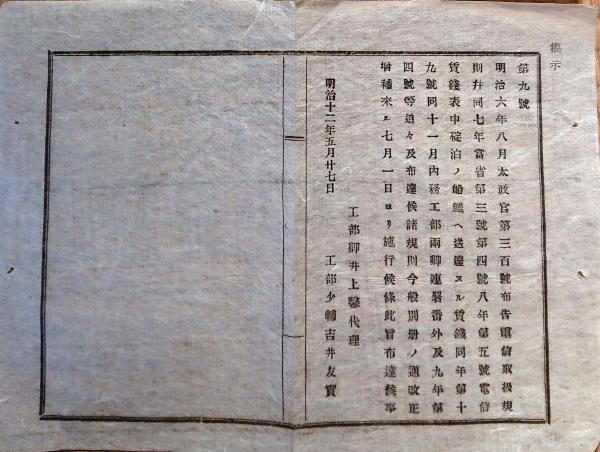 揭示
第九號
明治六年八月太政官第三百號布告電信取扱規
則幷同七年當省第三號第四號八年第五號電信
賃錢表中碇泊ノ船艦ヘ送達スル賃錢同年第十
九號同十一月內務工部兩卿連署番外及九年第
四號等追々及布達候諸規則今般別册ノ通改正
增補來ル七月一日ヨリ施行候條此旨布達候事
明治十二年五月廿七日
工部卿井上馨代理
工部少輔吉井友實